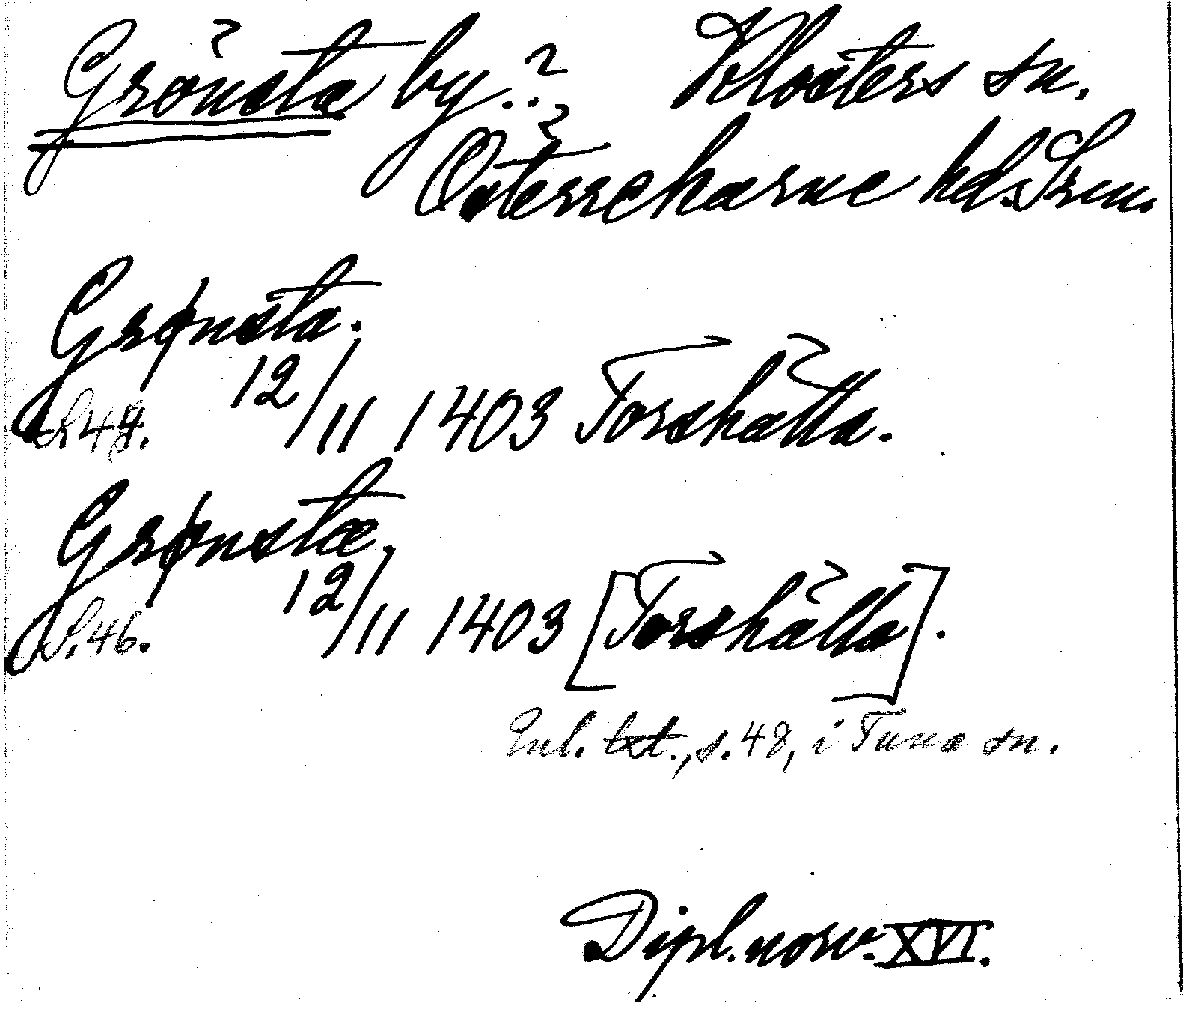 Grönsta by.? Klosters sn.
Österrekarne hd. Srm.
Grønsta.
S.48. 12/11 1403 Torshälla.
Grønstæ.
S.46. 12/11 1403 [Torshälla].
Enl. txt., s. 48, i Tuna sn.
Dipl. norv. XVI.